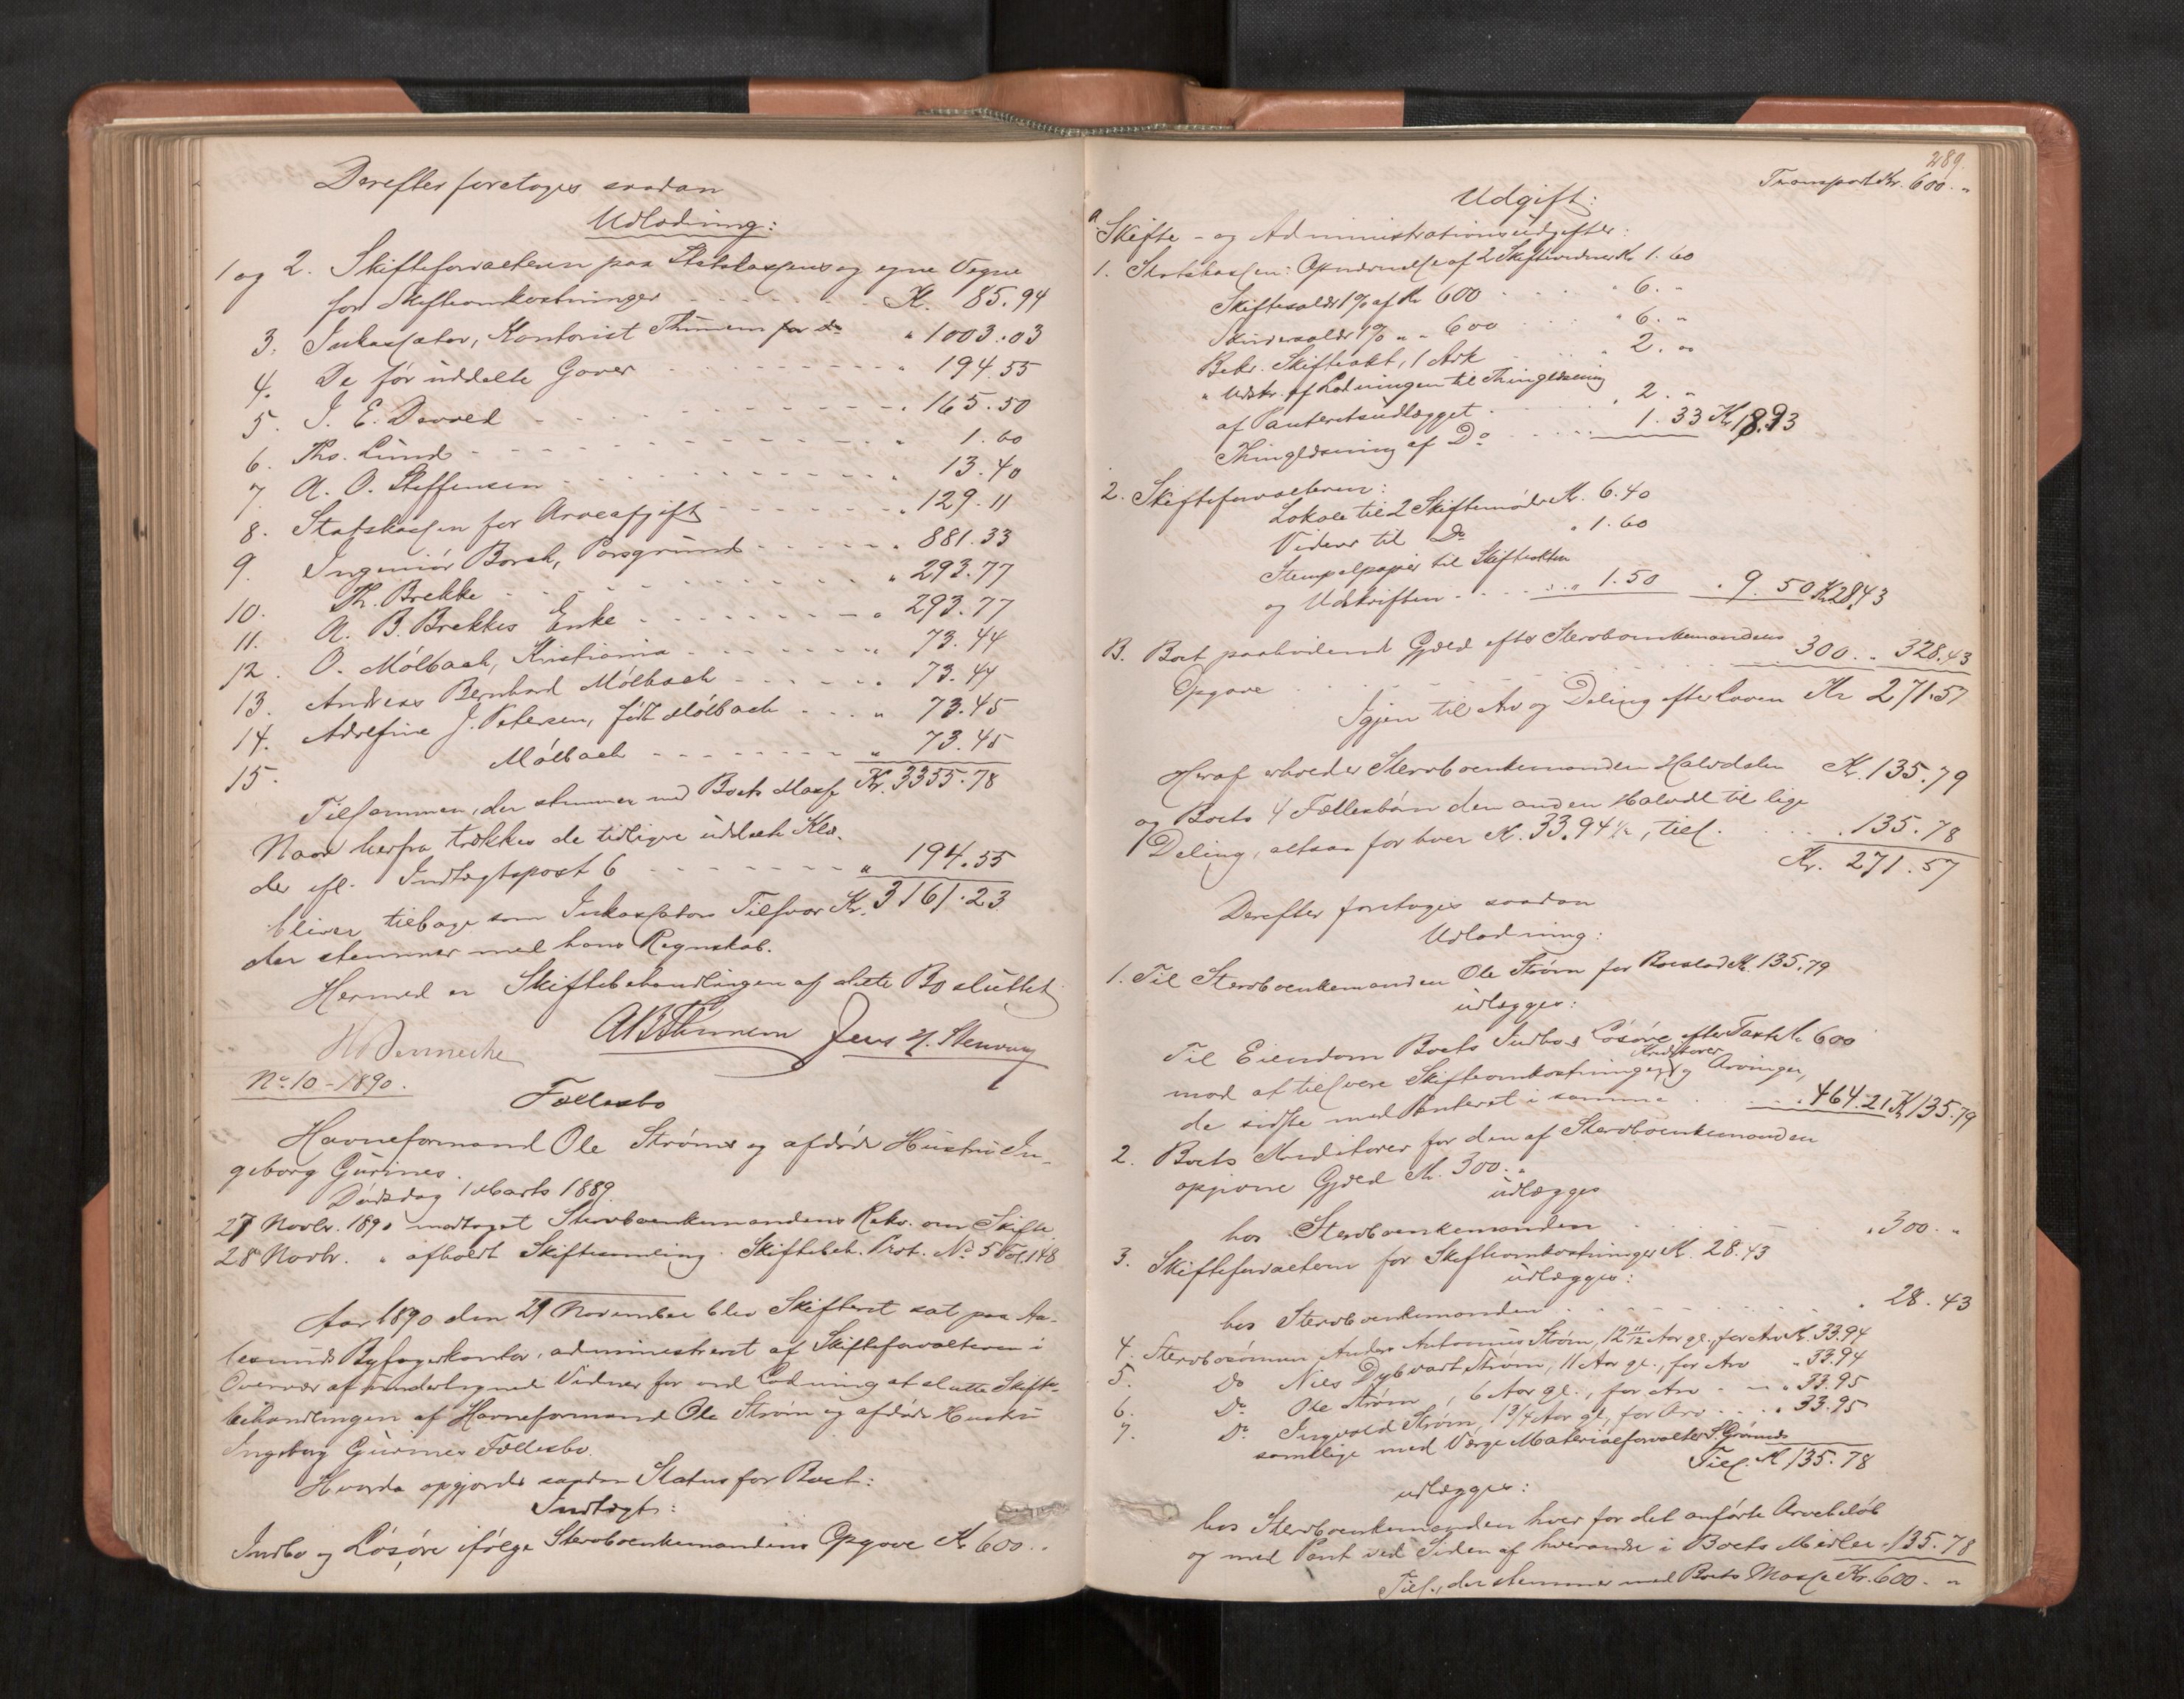 Derefter foretoges saadan
Udlodning:
1 og 2. Skifteforvalteren paa Statskassens og egne Vegne
for Skifteomkostninger - - - - K. 85.94
3. Inkassator, Kontorist Thinnem for do " 1003.03
4. De før uddelte Gaver - - - - " 194.55
5. I. E. Devold - - - - " 165.50
6. Ths. Lund - - - - " 1.60
7. A. O. Steffensen - - - - " 13.40
8. Statskassen for Arveafgift - - - - " 129.11
9. Ingeniør Borch, Porsgrund - - - - " 881.33
10. Th. Brekke - - - - " 293.77
11. A. B. Brekkes Enke - - - - " 293.77
12. O. Mölbach, Kristiania - - - - " 73.44
13. Andreas Bernhard Mölbach - - - - " 73.44
14. Adolfine J. Petersen, född Mölbach - - - " 73.45
15. Mölbach - - - - " 73.45
Tilsammen, der stemmer med Boets Masse Kr. 3355.78
Naar herfra trækkes de tidligere uddelte Klæ-
der efl. Indtægtspost 6 - - - - " 194.55
bliver tilbage som Inkassators Tilsvar Kr. 3161.23
der stemmer med hans Regnskab.
Hermed er Skiftebehandlingen af dette Bo sluttet
Jens H. Stenvaag
No. 10 - 1890.
Fællesbo
Havneformand Ole Strøms og afdøde Hustru In-
geborg Gurines.
Dødsdag 1 Marts 1889.
27 Novbr. 1890 modtaget Stervboenkemandens Rekv. om Skifte.
28 Novbr. " afholdt Skiftesamling. Skiftebeh. Prot. No 5 Fol. 148
Aar 1890 den 29 November blev Skifteret sat paa Aa-
lesunds Byfogedkontor, administreret af Skifteforvalteren i
Overvær af undertegnede Vidner for ved Lodning at slutte Skifte-
behandlingen af Havneformand Ole Strøm og afdøde Hustru
Ingeborg Gurines Fællesbo.
Hvorda opgjordes saadan Status for Boet:
Indtægt:
Indbo og Løsøre ifølge Stervboenkemandens Opgave Kr 600 "
289.
Transport Kr. 600. "
Udgift:
A Skifte- og Administrationsudgifter:
1. Statskassen: Opnævnelse af 2 Skiftevidner Kr 1.60
Skiftesalær 1% af Kr 600 - - - " 6. "
Skriversalær 1% " " 600 - - - " 6. "
Bekr. Skifteakt, 1 Ark - - - " 2. "
" Udskr. af Lodningen til Thinglæsning
af Panteretsudlægget - - - " 2. "
Thinglæsning af Do - - - 1.33 Kr 18.93
2. Skifteforvalteren:
Lokale til 2 Skiftemøder Kr. 6.40
Vidner til Do " 1.60
Stempelpapir til Skifteakten
og Udskriften - - - " 1.50 " 9.50 Kr 28.43
B. Boet paahvilende Gjæld efter Stervboenkemandens
Opgave - - - - 300. " 328.43
Igjen til Arv og Deling efter Loven Kr 271.57
Heraf erholder Stervboenkemanden Halvdelen Kr. 135.79
og Boets 4 Fællesbørn den anden Halvdel til lige
Deling, altsaa for hver Kr. 33.94 1/2, tils. - - - " 135.78
Kr. 271.57
Derefter foretoges saadan
Udlodning:
1. Til Stervboenkemanden Ole Strøm for Boeslod Kr. 135.79
udlægges:
Til Eiendom Boets Indbo & Løsøre efter Taxt Kr 600
mod at tilsvare Skifteomkostninger, Kreditorer og Arvinger,
de sidste med Panteret i samme - - - " 464.21 Kr 135.79
2. Boets Kreditorer for den af Stervboenkemanden
opgivne Gjæld Kr. 300. "
udlægges
hos Stervboenkemanden - - - " 300. "
3. Skifteforvalteren for Skifteomkostninger Kr. 28.43
udlægges:
hos Stervboenkemanden - - - " 28.43
4. Stervbosönnen Anders Antonius Strøm, 12 11/12 Aar gl., for Arv Kr. 33.94
5. Do Niels Dybvart Strøm, 11 Aar gl., for Arv " 33.94
6. Do Ole Strøm, 6 Aar gl., for Arv - - " 33.95
7. Do Ingvald Strøm, 1 3/4 Aar gl., for Arv - - " 33.95
samtlige med Værge Materialforvalter
Tils. Kr 135.78
udlægges:
hos Stervboenkemanden hver for det anførte Arvebeløb
og med Pant ved Siden af hverandre i Boets Midler " 135.78
Tils., der stemmer med Boets Masse Kr. 600. "